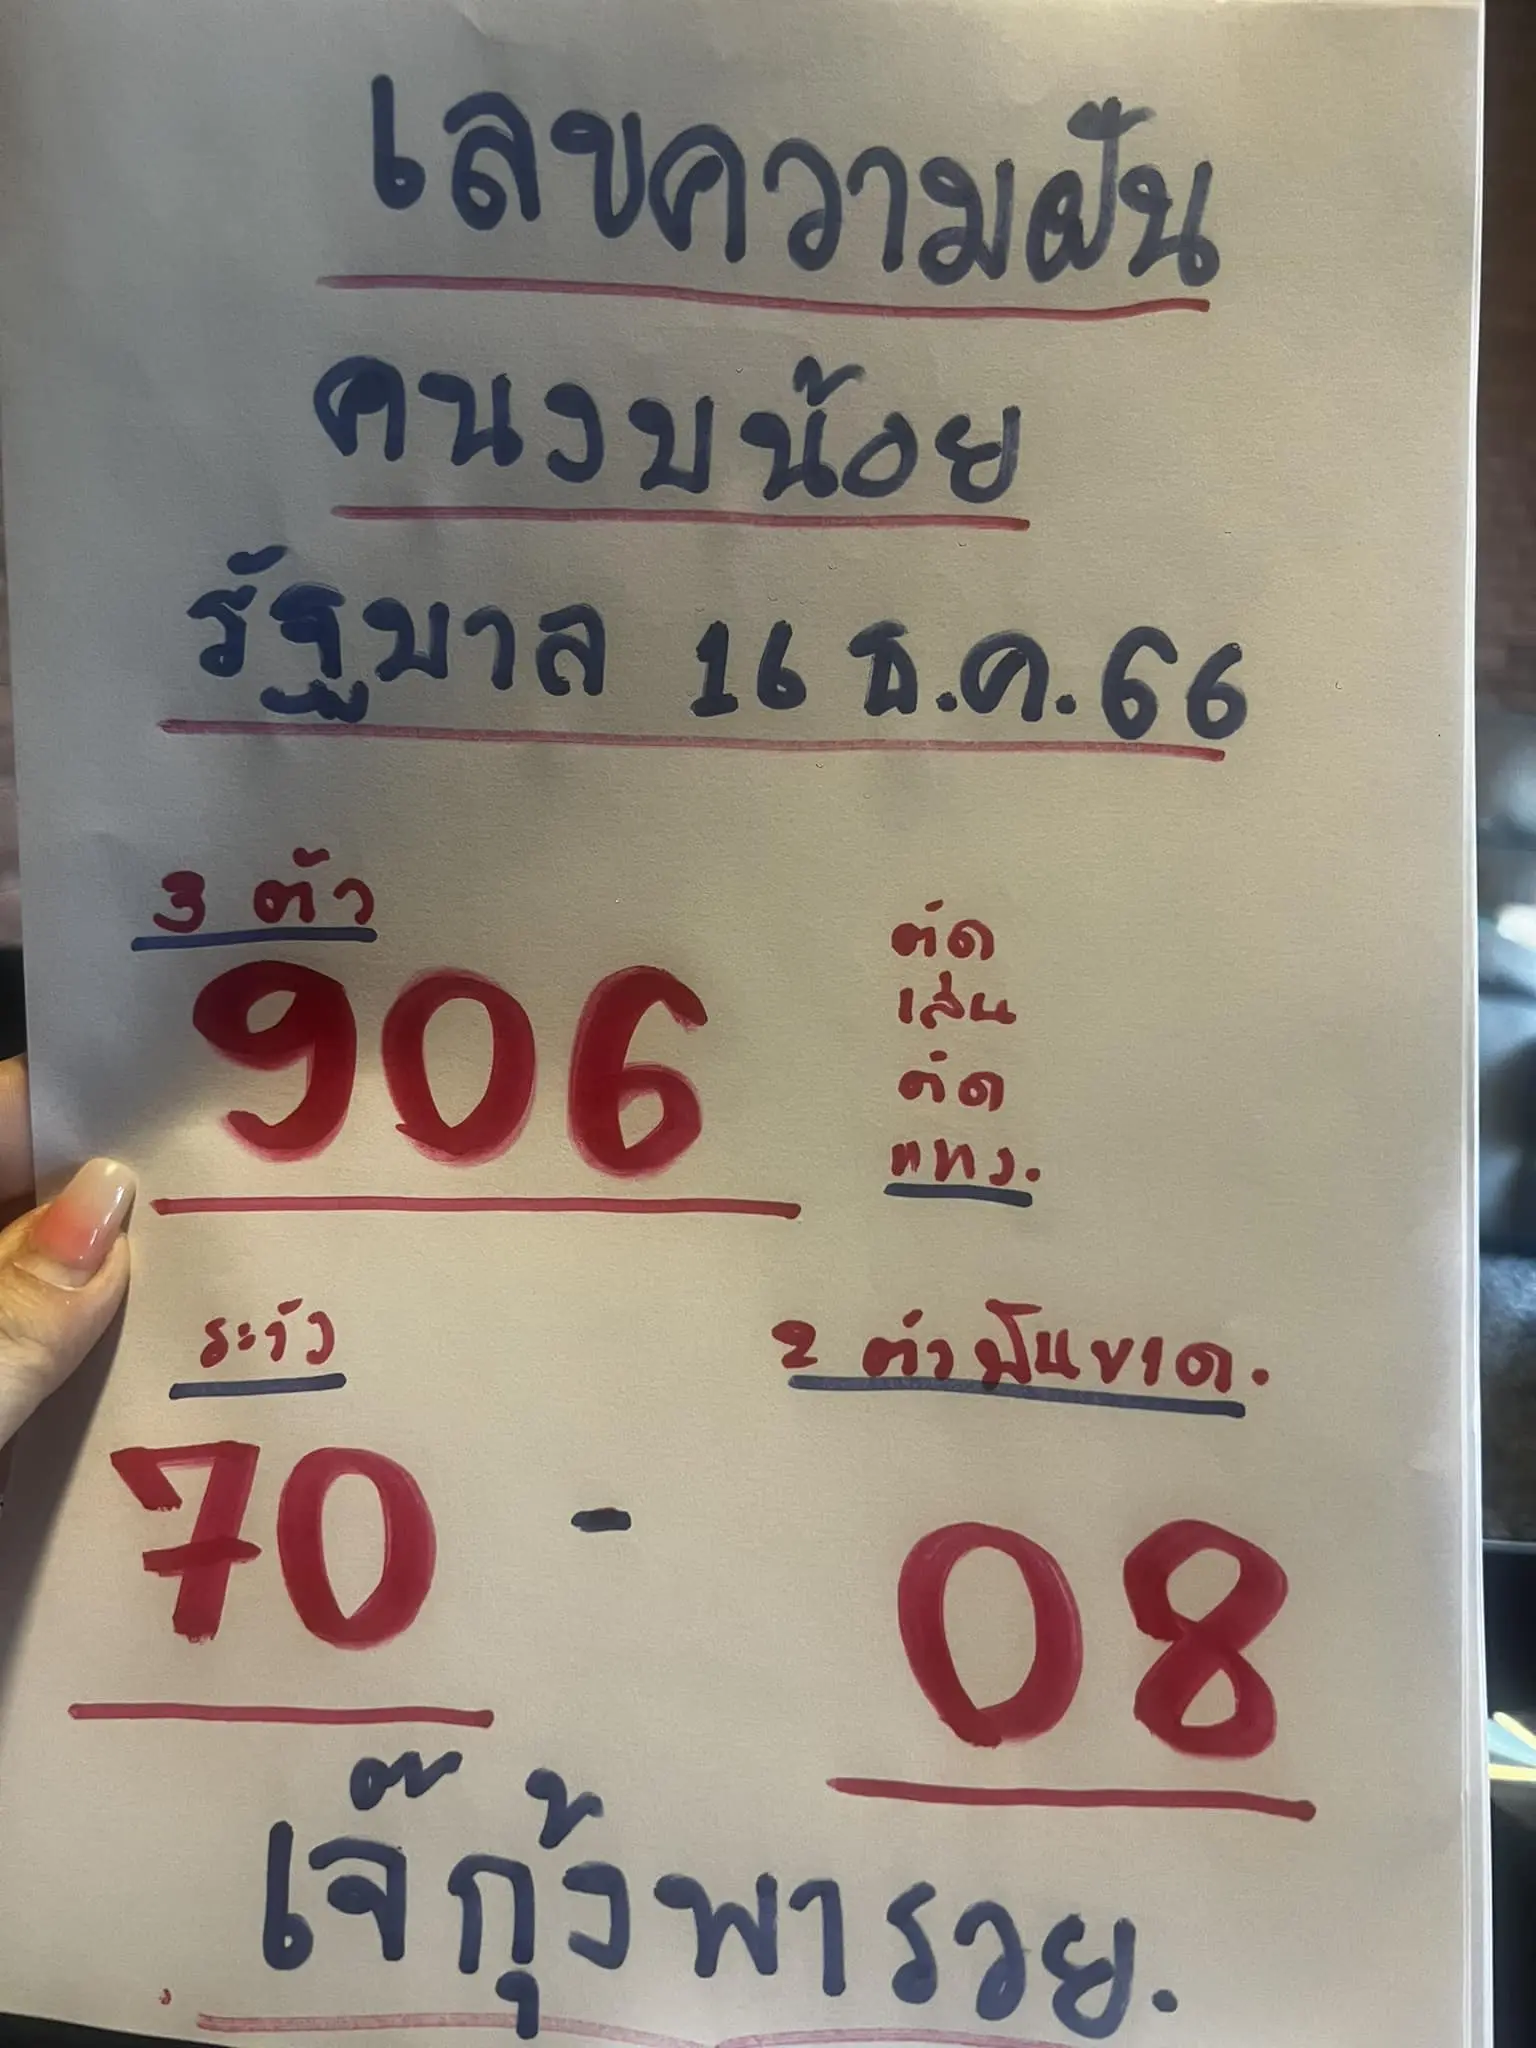 เลขความฝัน
คนงบน้อย
รัฐบาล 16 ธ.ค.66
3 ตัว
906
ตัด
เส่น
ตัด
แทง.
ระวัง
2 ตัวฟันขาด.
70 - 08
เจ๊กุ้งพารวย.